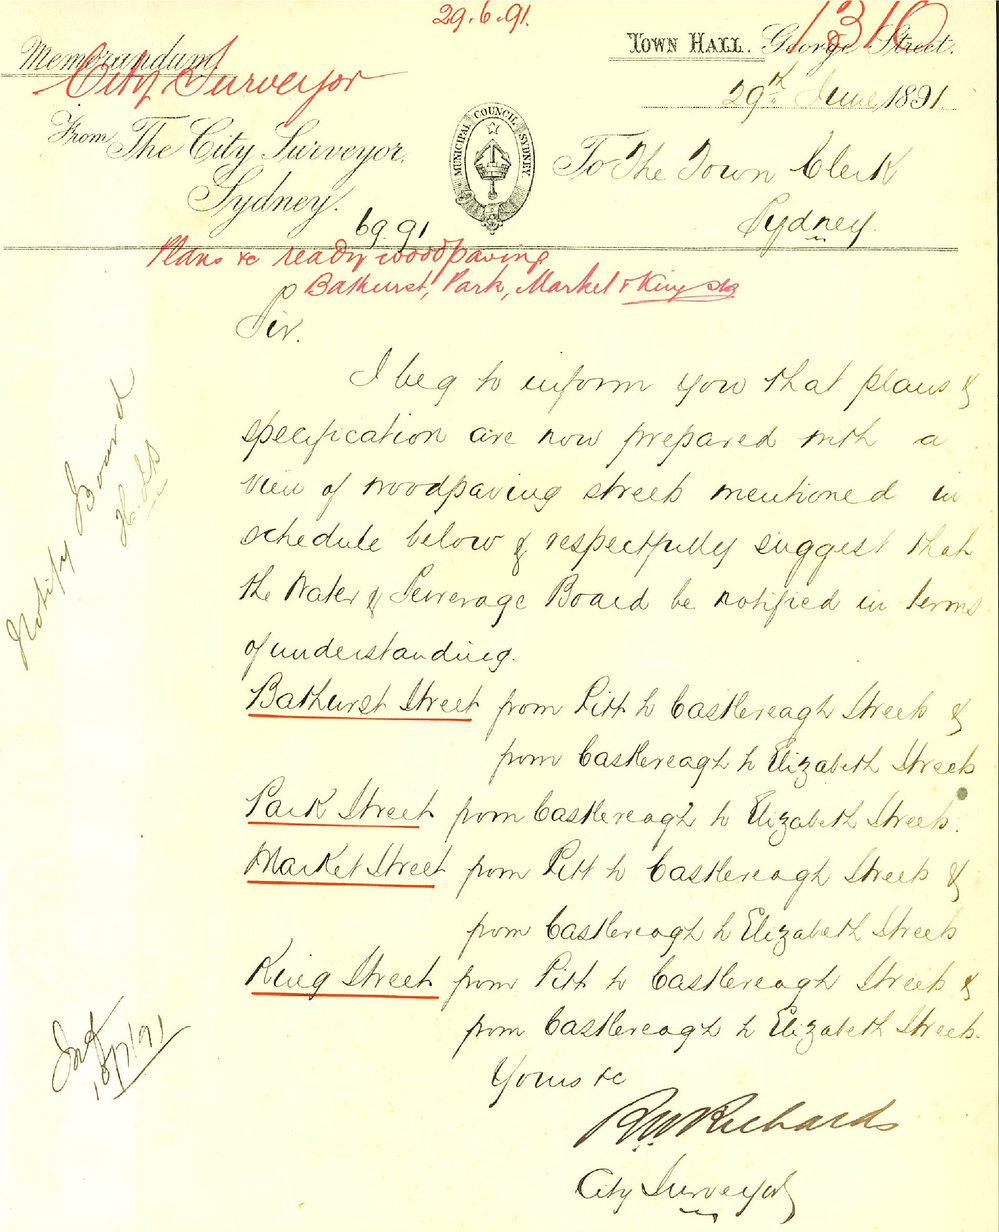 29.6.91.
1316
Memorandum
City Surveyor
TOWN HALL. George Street.
29th June 1891
From The City Surveyor,
Sydney.
MUNICIPAL COUNCIL SYDNEY.
To The Town Clerk
Sydney.
6991
Plans &c ready woodpaving
Bathurst, Park, Market & King Sts
Sir.
I beg to inform you that plans &
specification are now prepared with a
view of woodpaving streets mentioned in
schedule below & respectfully suggest that
the Water & Sewerage Board be notified in terms
of understanding.
Bathurst Street from Pitt to Castlereagh Streets &
from Castlereagh to Elizabeth Streets
Park Street from Castlereagh to Elizabeth Streets.
Market Street from Pitt to Castlereagh Streets &
from Castlereagh to Elizabeth Streets
King Street from Pitt to Castlereagh Streets &
from Castlereagh to Elizabeth Streets.
Yours &c
RW Richards
City Surveyor
Notify Board